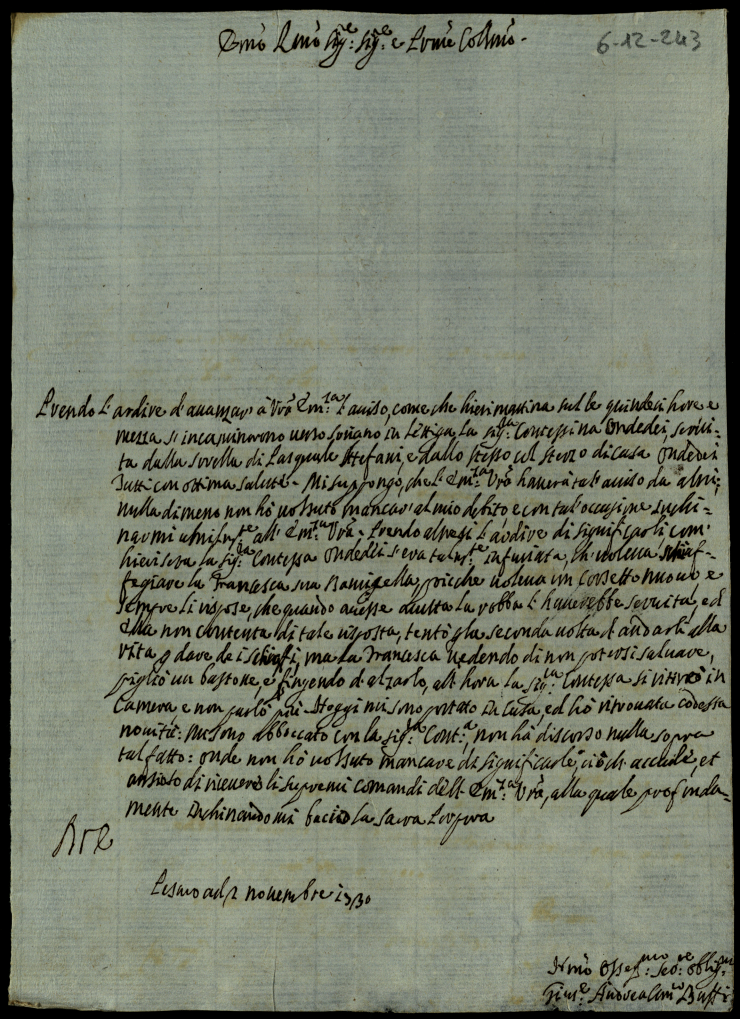 Emo Rmo Sigre: Sigre: e Prone Colmo.
6-12-243
Prendo l'ardire d'auanzar à Vrã Emza l'auiso, come che hieri mattina sul le quindeci hore e
mezza si incaminorono uerso foriano in Lettiga, la sigra Contessina Ondedei, serui=
ta dalla sorella di Pasquale Stefani, e dallo stesso col sterzo di casa Ondedei
Tutti con ottima salute. Mi suppongo, che l'Emza Vrã hauerà tal auiso da altri;
nulla di meno non hò uolsuto mancar al mio debito e con tal'occasione Inchi=
narmi umilmte all' Emza Vrã; Prendo altresi l'ardire di significarli com'
hieri sera la sigra Contessa Ondedei s'era talmte infuriata, ch' uoleua schiaf=
fegiare la Francesca sua Damigella, perche uoleua un corsetto nuouo, e
sempre li rispose, che quando auesse auuta la robba l'hauerebbe seruita, ed
Ella non contenta di tale risposta, tentò p la seconda uolta d'andarli alla
vita p dare dei schiaffi, ma la Francesca uedendo di non potersi saluare,
pigliò un bastone, e fingendo d'alzarlo, all' hora la sigra Contessa si ritirò in
Camera e non parlò più. Hoggi mi sono portato in Casa, ed hò ritrouata codessa
nouità: mi sono abboccato con la sigra Conta, non hà discorso nulla sopra
tal fatto: onde non hò uolsuto mancare di significarle, ciò ch' accade, et
ansioso di riceuere li supremi comandi dell' Emza Vrã, alla quale profonda=
mente Inchinandomi bacio la Sacra Porpora
Pesaro ad 2 nouembre 1730
Umo Ossemo: Sere: obligmo
Giuse Andrea Buffi